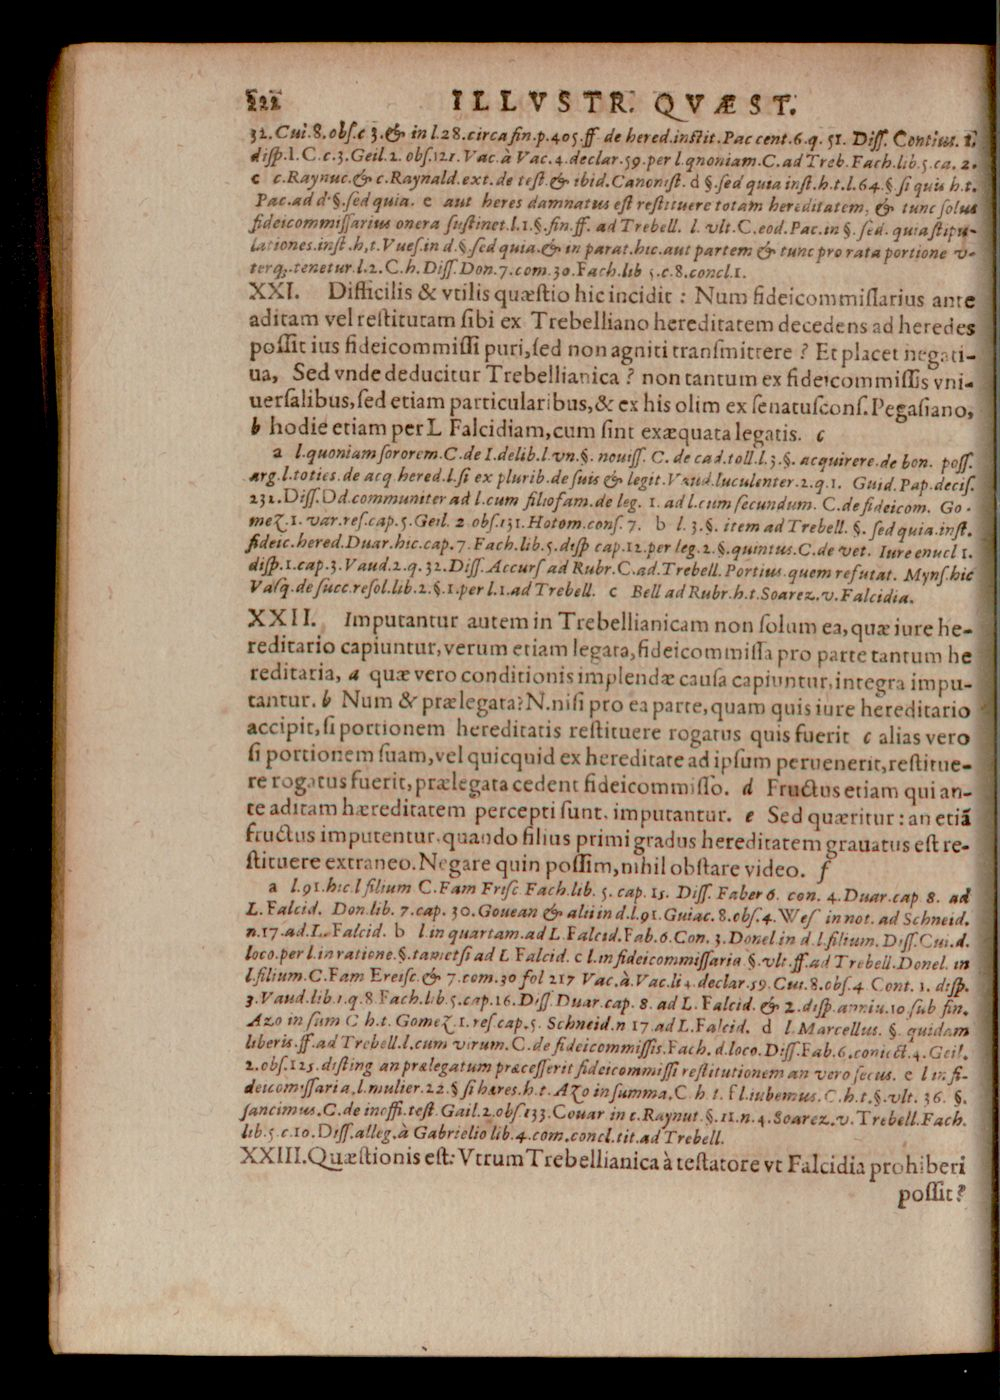 122 ILLVSTR. QVÆST.
32. Cui. 8. obſ. c 3. & in l. 28. circa fin. p. 405. ff. de hered. inſtit. Pac cent. 6. q. 51. Diſſ. Contius. 1.
diſp. l. C. c. 3. Geil. 2. obſ. 121. Vac. à Vac. 4. declar. 59. per l. qnoniam. C. ad Treb. Fach. lib. 5. ca. 2.
c c. Raynuc. & c. Raynald. ext. de teſt. & ibid. Canoniſt. d §. ſed quia inſt. h. t. l. 64. §. ſi quis h. t.
Pac. ad d. §. ſed quia. e aut heres damnatus eſt reſtituere totam hereditatem, & tunc ſolus
fideicommiſſarius onera ſuſtinet. l. 1. §. fin. ff. ad Trebell. l. vlt. C. eod. Pac. in §. ſed. quia ſtipu-
lationes. inſt. h, t. Vueſ. in d. §. ſed quia. & in parat. hic. aut partem & tunc pro rata portione v-
terq;. tenetur. l. 2. C. h. Diſſ. Don. 7. com. 30. Fach. lib 5. c. 8. concl. 1.
XXI. Difficilis & vtilis quæſtio hic incidit : Num fideicommiſſarius ante
aditam vel reſtitutam ſibi ex Trebelliano hereditatem decedens ad heredes
poſſit ius fideicommiſſi puri, ſed non agniti tranſmittere ? Et placet negati-
ua, Sed vnde deducitur Trebellianica ? non tantum ex fideicommiſſis vni-
uerſalibus, ſed etiam particularibus, & ex his olim ex ſenatuſconſ. Pegaſiano,
b hodie etiam per L Falcidiam, cum ſint exæquata legatis. c
a l. quoniam ſororem. C. de I. delib. l. vn. §. nouiſſ. C. de cad. toll. l. 3. §. acquirere. de bon. poſſ.
arg. l. toties. de acq. hered. l. ſi ex plurib. de ſuis & legit. Vaud. luculenter. 2. q. 1. Guid. Pap. deciſ.
231. Diſſ. Dd. communiter ad l. cum filiofam. de leg. 1. ad l. cum ſecundum. C. de fideicom. Go-
mez. 1. var. reſ. cap. 5. Geil. 2 obſ. 131. Hotom. conſ. 7. b l. 3. §. item ad Trebell. §. ſed quia. inſt.
fideic. hered. Duar. hic. cap. 7. Fach. lib. 5. diſp cap. 12. per leg. 2. §. quintus. C. de vet. Iure enucl 1.
diſp. 1. cap. 3. Vaud. 2. q. 32. Diſſ. Accurſ ad Rubr. C. ad. Trebell. Portius. quem refutat. Mynſ. hic
Vaſq. de ſucc. reſol. lib. 2. §. 1. per l. 1. ad Trebell. c Bell ad Rubr. h. t. Soarez. v. Falcidia.
XXII. Imputantur autem in Trebellianicam non ſolum ea, quæ iure he-
reditario capiuntur, verum etiam legata, fideicommiſſa pro parte tantum he
reditaria, a quæ vero conditionis implendæ cauſa capiuntur, integra impu-
tantur. b Num & prælegata? N. niſi pro ea parte, quam quis iure hereditario
accipit, ſi portionem hereditatis reſtituere rogatus quis fuerit c alias vero
ſi portionem ſuam, vel quicquid ex hereditate ad ipſum peruenerit, reſtitue-
re rogatus fuerit, prælegata cedent fideicommiſſo. d Fructus etiam qui an-
te aditam hæreditatem percepti ſunt. imputantur. e Sed quæritur : an etiã
fructus imputentur, quando filius primi gradus hereditatem grauatus eſt re-
ſtituere extraneo. Negare quin poſſim, nihil obſtare video. f
a l. 91. hic. l filium C. Fam Friſc Fach. lib. 5. cap. 15. Diſſ. Faber 6. con. 4. Duar. cap 8. ad
L. Falcid. Don. lib. 7. cap. 30. Gouean & alii in d. l. 91. Guiac. 8. obſ. 4. Weſ in not. ad Schneid.
n. 17. ad. L. Falcid. b l in quartam. ad L Falcid. Fab. 6. Con. 3. Donel in d. l. filium. Diſſ. Cui. d.
loco. per l. in ratione. §. tametſi ad L Falcid. c l. in fideicommiſſaria §. vlt. ff. ad Trebell. Donel. in
l. filium. C. Fam Ereiſc. & 7. com. 30 fol 217 Vac. à. Vac. li 4. declar. 59. Cui. 8. obſ. 4 Cont. 1. diſp.
3. Vaud. lib. 1. q. 8 Fach. lib. 5. cap. 16. Diſſ. Duar. cap. 8. ad L. Falcid. & 2. diſp. anniu. 10 ſub fin.
Azo in ſum C h. t. Gomez. 1. reſ cap. 5. Schneid. n 17. ad L. Falcid. d l. Marcellus. §. quidam
liberis. ff. ad Trebell. l. cum virum. C. de fideicommiſſis. Fach. d. loco. Diſſ. Fab. 6. coniect. 4. Geil.
2. obſ. 125. diſting an prælegatum præceſſerit fideicommiſſi reſtitutionem an vero ſecus. e l in fi-
deicomiſſaria, l. mulier. 22. § ſi hæres. h. t. Azo in ſumma. C. h. t. f l. iubemus. C. h. t. §. vlt. 36. §.
ſancimus. C. de inoffi. teſt. Gail. 2. obſ 133. Couar in c. Raynut. §. 11. n. 4. Soarez. v. Trebell. Fach.
lib. 5. c. 10. Diſſ. alleg. à Gabrielio lib. 4. com. concl. tit. ad Trebell.
XXIII. Quæſtionis eſt: Vtrum Trebellianica à teſtatore vt Falcidia prohiberi
poſſit?